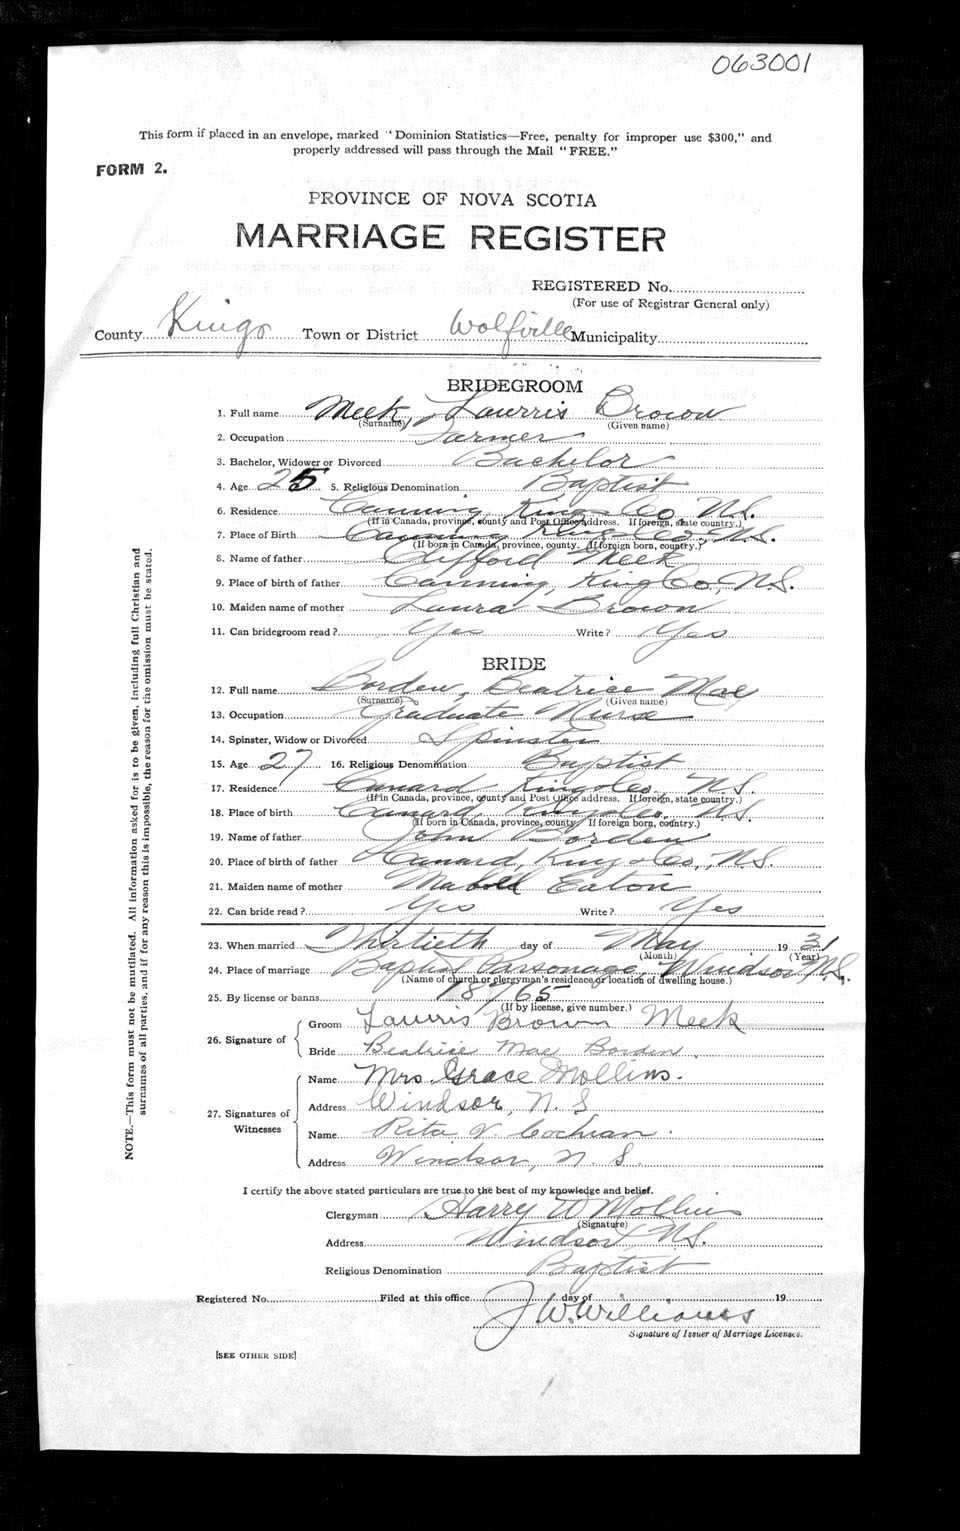 063001
This form if placed in an envelope, marked "Dominion Statistics—Free, penalty for improper use $300," and
properly addressed will pass through the Mail "FREE."
FORM 2.
PROVINCE OF NOVA SCOTIA
MARRIAGE REGISTER
REGISTERED No.
(For use of Registrar General only)
County Kings Town or District Wolfville Municipality
BRIDEGROOM
1. Full name Meek, Laurris Brown
(Surname) (Given name)
2. Occupation Farmer
3. Bachelor, Widower or Divorced Bachelor
4. Age 25 5. Religious Denomination Baptist
6. Residence Canning Kings Co N.S.
(If in Canada, province, county and Post Office address. If foreign, state country.)
7. Place of Birth Canning Kings Co., N.S.
(If born in Canada, province, county. If foreign born, country.)
8. Name of father Clifford Meek
9. Place of birth of father Canning, King Co., N.S.
10. Maiden name of mother Laura Brown
11. Can bridegroom read? Yes Write? Yes
BRIDE
12. Full name Borden, Beatrice Mae
(Surname) (Given name)
13. Occupation Graduate Nurse
14. Spinster, Widow or Divorced Spinster
15. Age 27 16. Religious Denomination Baptist
17. Residence Canard Kings Co. N.S.
(If in Canada, province, county and Post Office address. If foreign, state country.)
18. Place of birth Canard, Kings Co. N.S.
(If born in Canada, province, county. If foreign born, country.)
19. Name of father John Borden
20. Place of birth of father Canard, Kings Co., N.S.
21. Maiden name of mother Mabel Eaton
22. Can bride read? Yes Write? Yes
23. When married Thirtieth day of May 1931
(Month) (Year)
24. Place of marriage Baptist Parsonage, Windsor, N.S.
(Name of church or clergyman's residence or location of dwelling house.)
25. By license or banns 18765
(If by license, give number.)
26. Signature of Groom Laurris Brown Meek
Bride Beatrice Mae Borden
27. Signatures of Witnesses Name Mrs. Grace Mollins.
Address Windsor, N.S
Name Rita V. Cochran.
Address Windsor, N.S.
I certify the above stated particulars are true to the best of my knowledge and belief.
Clergyman Harry W Mollins
(Signature)
Address Windsor N.S.
Religious Denomination Baptist
Registered No. Filed at this office day of 19
J W. Williams
Signature of Issuer of Marriage Licenses.
[SEE OTHER SIDE]
NOTE.—This form must not be mutilated. All information asked for is to be given, including full Christian and
surnames of all parties, and if for any reason this is impossible, the reason for the omission must be stated.